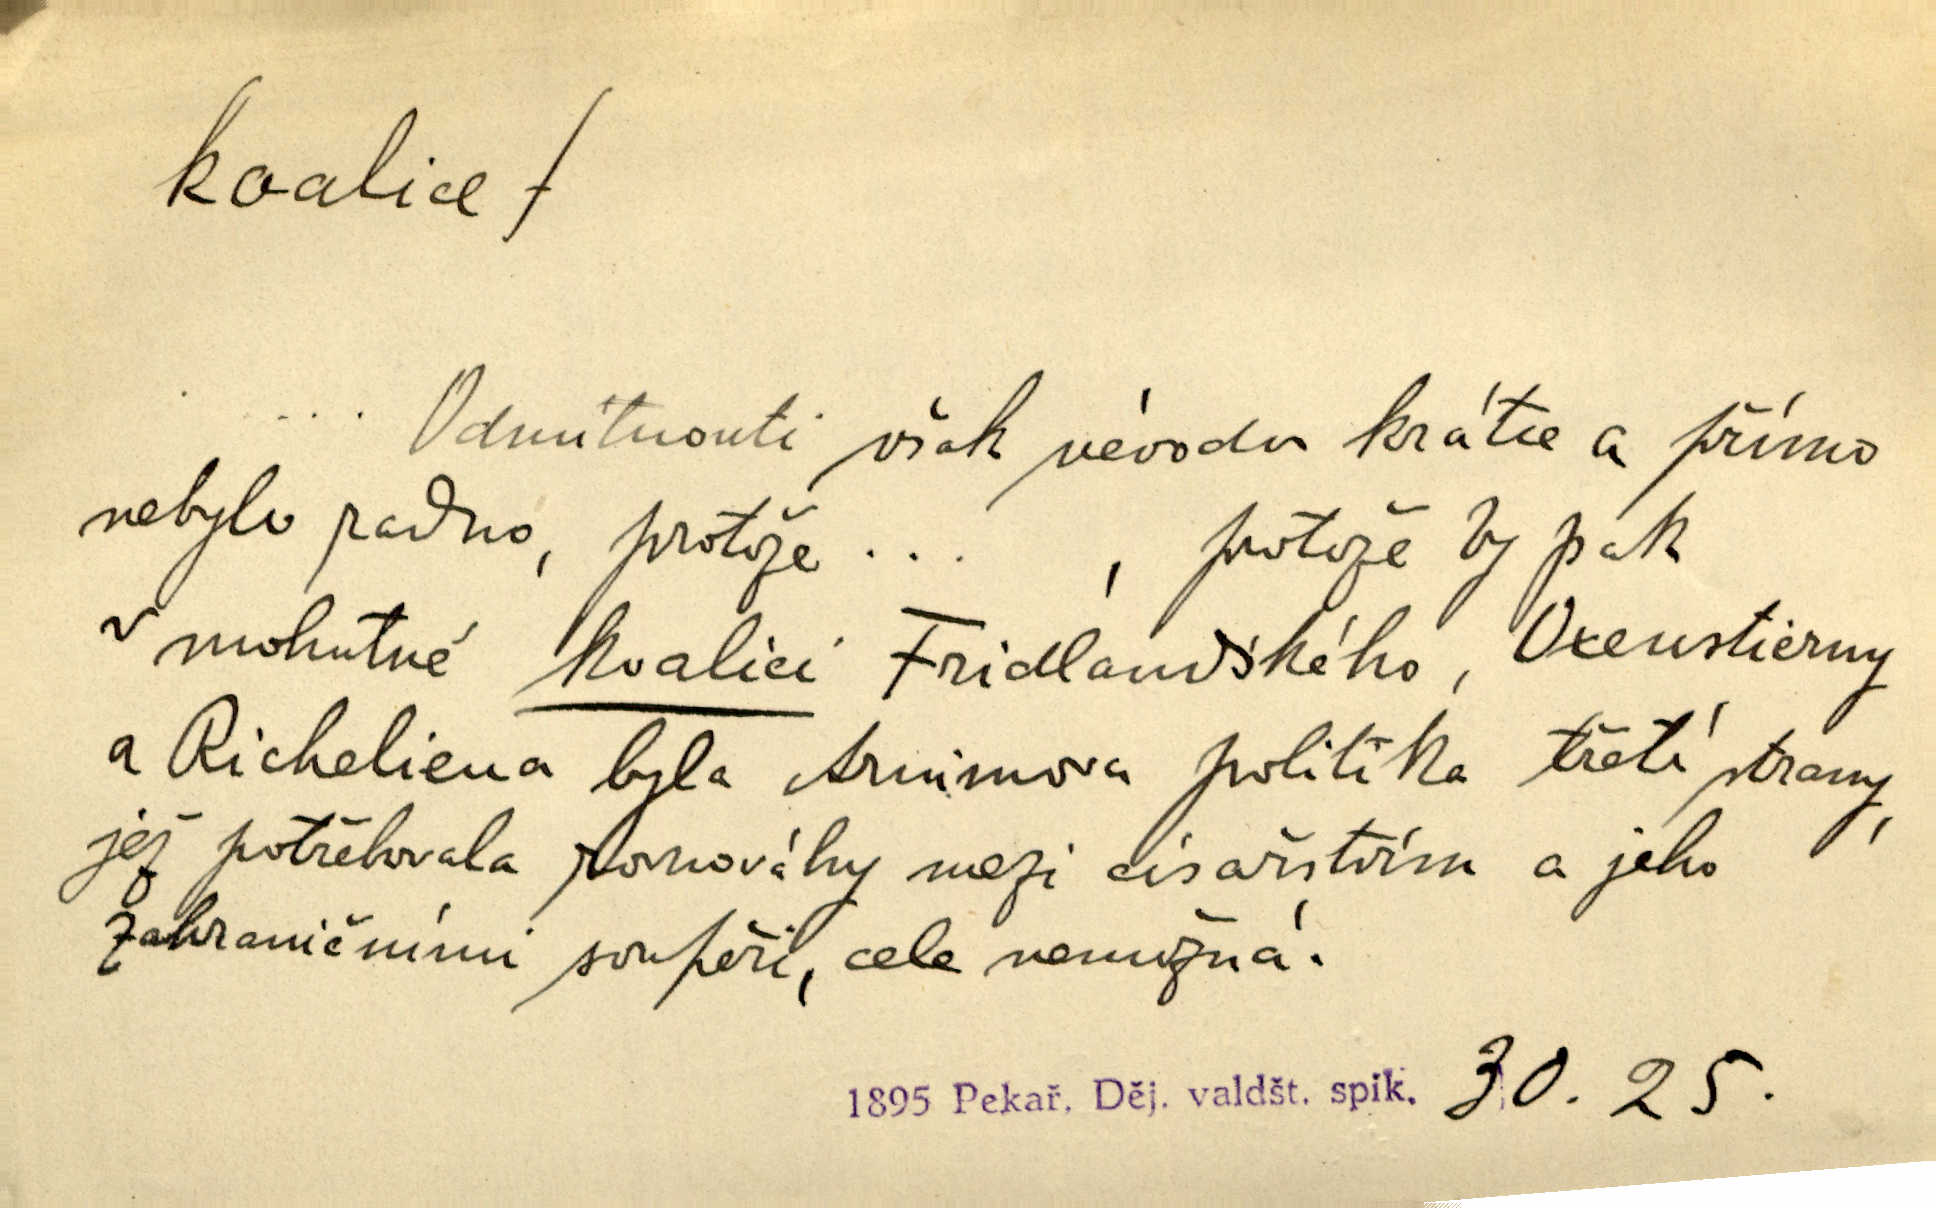 koalice f
.... Odmítnouti však vévodu krátce a přímo
nebylo radno, protože ... , protože by pak
v mohutné koalici Fridlandského, Oxenstierny
a Richelieua byla Arnimova politika třetí strany,
jež potřebovala rovnováhy mezi císařstvím a jeho
zahraničními soupeři, cele nemožná.
1895 Pekař. Děj. valdšt. spik. 30. 25.